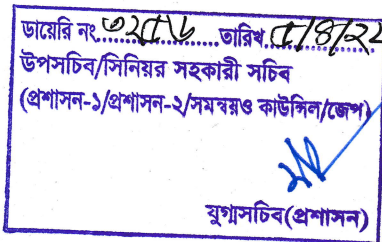 ডায়েরি নং.............তারিখ..............
উপসচিব/সিনিয়র সহকারী সচিব
(প্রশাসন-১/প্রশাসন-২/সমন্বয়ও কাউন্সিল/জেপ)
যুগ্মসচিব(প্রশাসন)